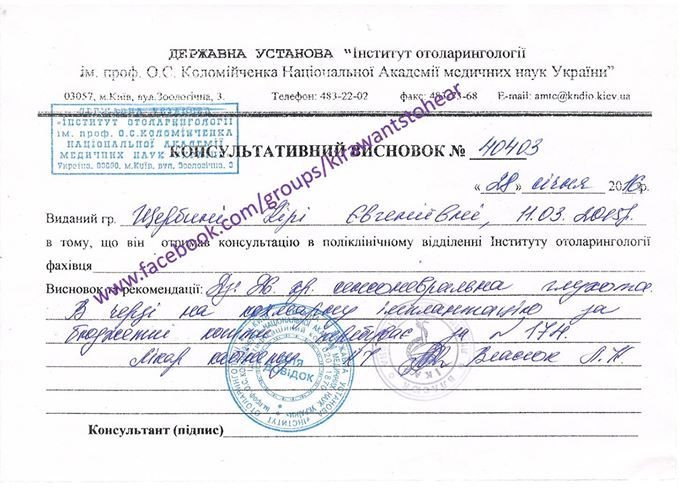 ДЕРЖАВНА УСТАНОВА "Інститут отоларингології
ім. проф. О.С. Коломійченка Національної Академії медичних наук України"
03057, м.Київ, вул.Зоологічна, 3. Телефон: 483-22-02 факс: 483-73-68 E-mail: amtc@kndio.kiev.ua
ДЕРЖАВНА УСТАНОВА
"ІНСТИТУТ ОТОЛАРИНГОЛОГІЇ
ім. проф. О.С.КОЛОМІЙЧЕНКА
НАЦІОНАЛЬНОЇ АКАДЕМІЇ
МЕДИЧНИХ НАУК УКРАЇНИ"
Україна, м.Київ, вул. Зоологічна, 3
КОНСУЛЬТАТИВНИЙ ВИСНОВОК № 40403
« 28 » січня 2016р.
Виданий гр. Щербині Кірі Євгеніївні, 11.03.2015р.
в тому, що він отримав консультацію в поліклінічному відділенні Інституту отоларингології
фахівця
Висновок та рекомендації: Дз. Хр. сенсоневральна глухота.
В черзі на кохлеарну імплантацію за
бюджетні кошти перебуває за №174.
Лікар Власюк Л.Н.
Консультант (підпис)
www.facebook.com/groups/kirawantstohear